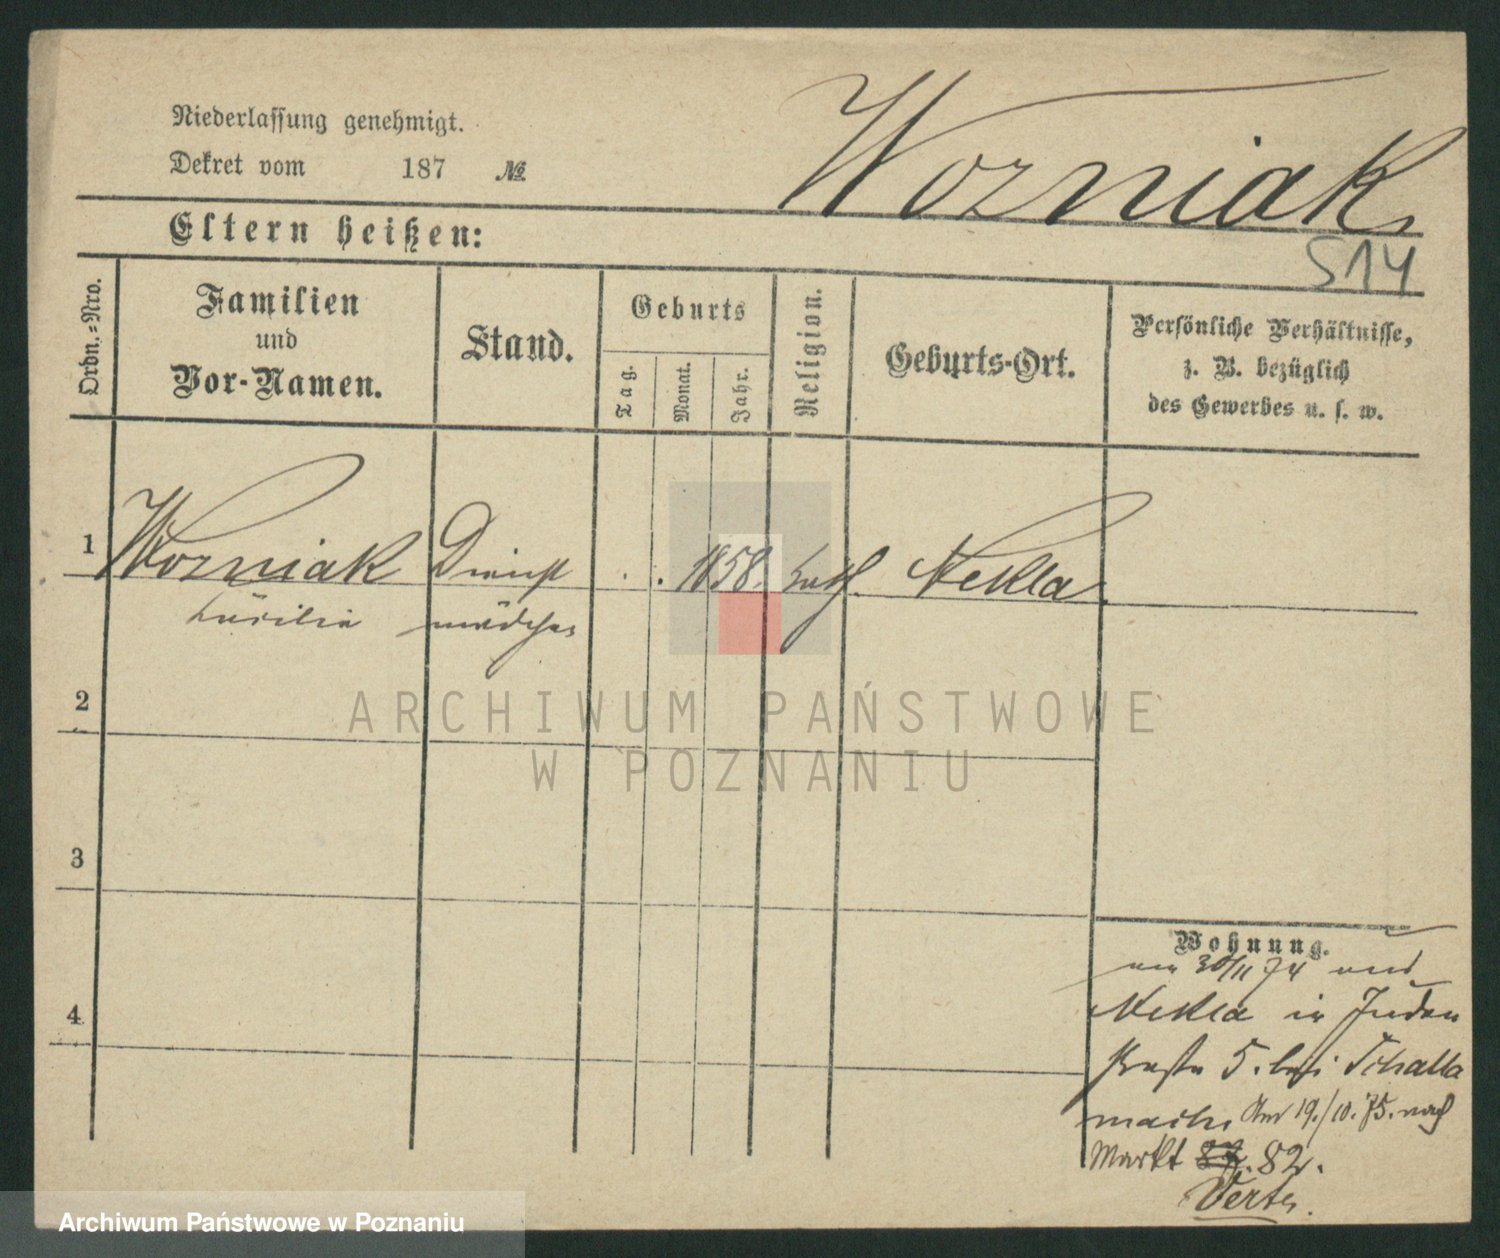 Niederlassung genehmigt.
Dekret vom 187 №
Wozniak
Eltern heißen:
S14
Ordn.-Nro.
Familien
und
Vor-Namen.
Stand.
Geburts
Tag.
Monat.
Jahr.
Religion.
Geburts-Ort.
Persönliche Verhältnisse,
z. B. bezüglich
des Gewerbes u. s. w.
1 Wozniak Dienst . . 1858. kath. Nekla.
Cäcilia mädchen
2
3
4
Wohnung.
am 30/11 74 aus
Nekla in Juden
straße 5. bei
Am 19./10. 75. nach
Markt 82.
ARCHIWUM PAŃSTWOWE
W POZNANIU
Archiwum Państwowe w Poznaniu